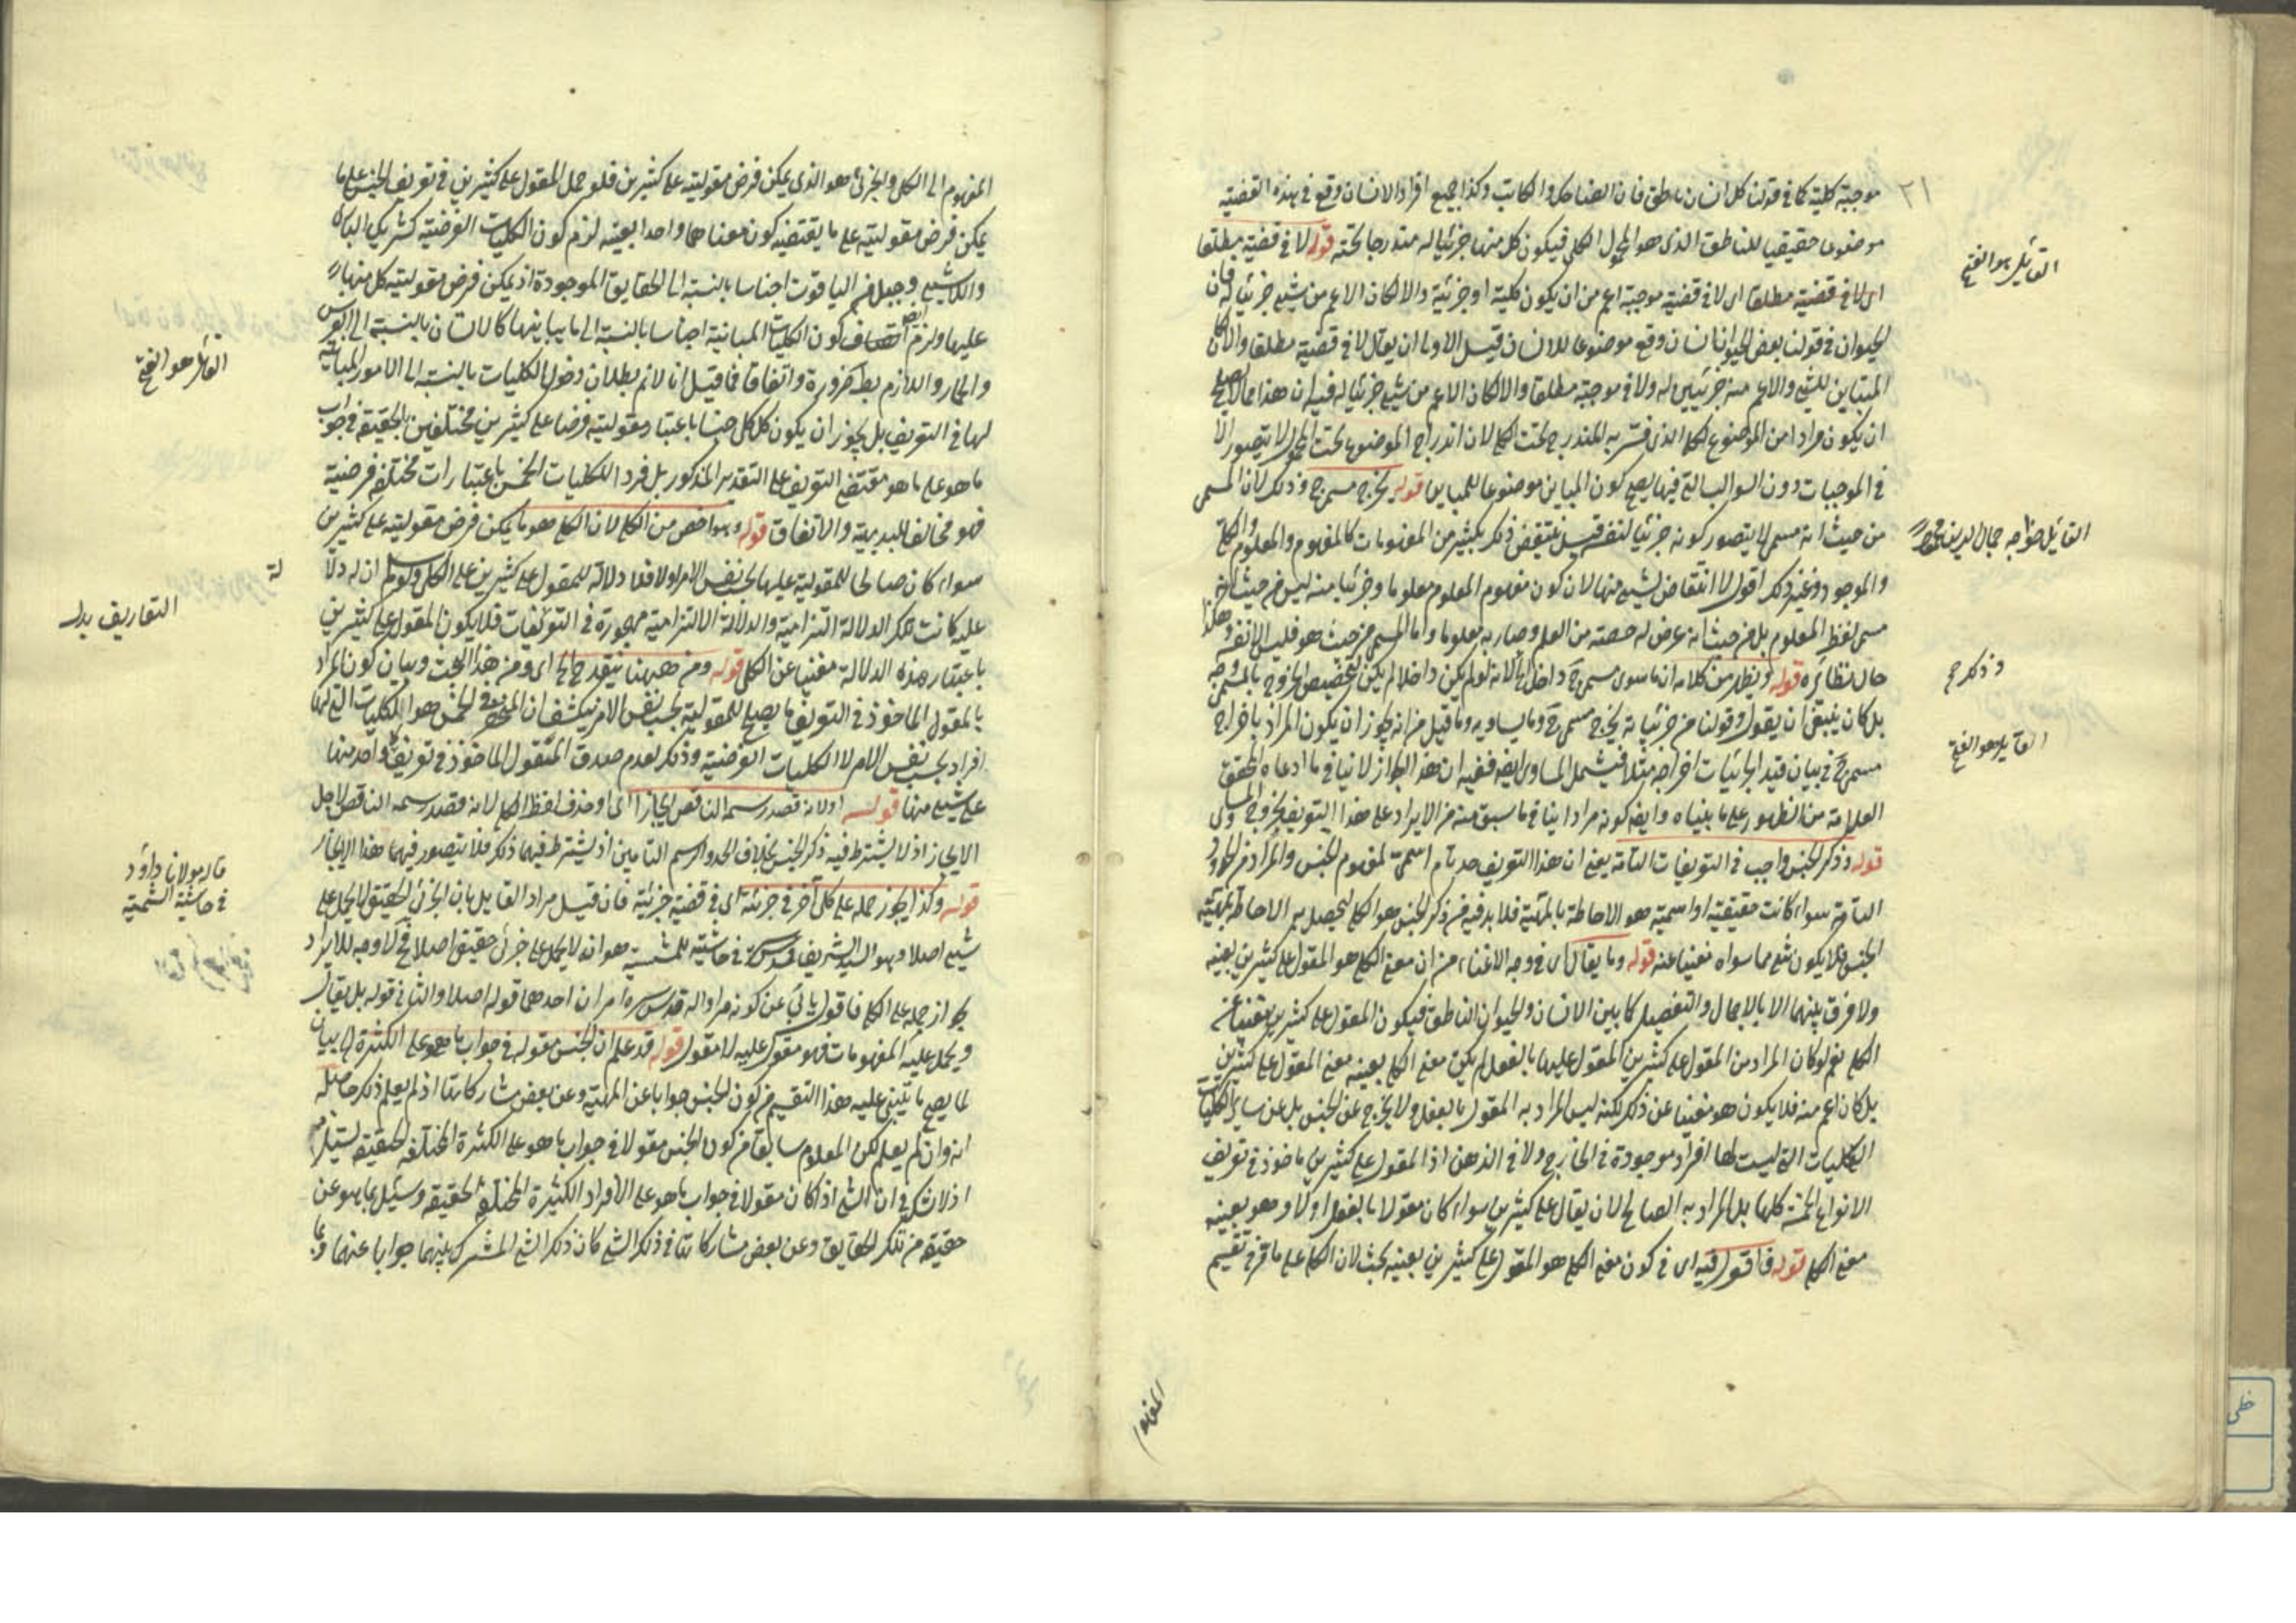 ٢١
موجبة كلية كما في قولنا كل انسان ناطق فان الضاحك والكاتب وكذا جميع افراد الانسان وقع في هذه القضية
موضوعا حقيقيا للناطق الذي هو المحمول الكلي فيكون كل منها جزئيا له مندرجا تحته قوله لا في قضية مطلقا
اى لا في قضية مطلقا اى لا في قضية موجبة اعم من ان يكون كلية او جزئية والا لكان الاعم من شيء جزئيا له فان
الحيوان في قولنا بعض الحيوان انسان وقع موضوعا للانسان قيل الاولى ان يقال لا في قضية مطلقا والا لكان
المتباين للشيء والاعم منه جزئيين له ولا في موجبة مطلقا والا لكان الاعم من شيء جزئيا له فيه ان هذا مما لا يصلح
ان يكون مرادا من الموضوع للكلي الذي فسر به المندرج تحت الكلي لان اندراج الموضوع تحت المحمول لا يتصور الا
في الموجبات دون السوالب التي فيها يصح كون المباين موضوعا للمباين قوله يخرج مسمى ج وذلك لان المسمى
من حيث انه مسمى لا يتصور كونه جزئيا لنفسه قيل ينتقض ذلك بكثير من المفهومات كالمفهوم والمعلوم والكلي
والموجود وغير ذلك اقول لا انتقاض لشيء منها لان كون مفهوم المعلوم معلوما وجزئيا منه ليس من حيث انه
مسمى لفظ المعلوم بل من حيث انه عرض له حصته من العلم وصار به معلوما واما المسمى من حيث هو فليس الا نفسه وهكذا
حال نظائره قوله ويظهر من كلامه ان ما سوى مسمى ج داخل الخ لانه لو لم يكن داخلا لم يكن لتخصيص الخروج بالمسمى وجه
بل كان ينبغي ان يقول وقولنا من جزئياته يخرج مسمى ج وما يساويه وما قيل من انه يجوز ان يكون المراد باخراج
مسمى ج في بيان قيد الجزئيات اخراجه مثلا فيشمل المساوي ايضا ففيه ان هذا الجواز لا ينافي ما ادعاه المحقق
العلامة من الظهور على ما بيناه وايضا كونه مرادا ينافي ما سبق منه من الايراد على هذا التعريف بخروج المساوي
قوله وذكر الجنس واجب في التعريفات التامة يعني ان هذا التعريف حد تام اسمي لمفهوم الجنس والمراد من الحدود
التامة سواء كانت حقيقية او اسمية هو الاحاطة بالمهية فلا بد فيه من ذكر الجنس هو الكلي ليحصل به الاحاطة بمهية
الجنس فلا يكون شيء مما سواه مغنيا عنه قوله وما يقال اى في وجه الاغناء من ان معنى الكلي هو المقول على كثيرين بعينه
ولا فرق بينهما الا بالاجمال والتفصيل كما بين الانسان والحيوان الناطق فيكون المقول على كثيرين مغنيا عن
الكلي نعم لو كان المراد من المقول على كثيرين المقول عليها بالفعل لم يكن معنى الكلي بعينه معنى المقول على كثيرين
بل كان اعم منه فلا يكون هو مغنيا عن ذلك لكنه ليس المراد به المقول بالفعل ولا يخرج عن الجنس بل عن ساير الكليات
الكليات التي ليست لها افراد موجودة في الخارج ولا في الذهن اذ المقول على كثيرين ماخوذ في تعريف
الانواع الخمسة كلها بل المراد به الصالح لان يقال على كثيرين سواء كان مقولا بالفعل او لا وهو بعينه
معنى الكلي قوله فاقول فيه اى في كون معنى الكلي هو المقول على كثيرين بعينه بحث لان الكلي على ما قرر في تقسيم
المفهوم
القائل هو الفتح
القائل خواجه جمال الدين محمود
وذكر ج
القائل هو الفتح
المفهوم الى الكلي والجزئي هو الذي يمكن فرض مقوليته على كثيرين فلو حمل المقول على كثيرين في تعريف الجنس على ما
يمكن فرض مقوليته على ما يقتضيه كون معناهما واحدا بعينه لزم كون الكليات الفرضية كشريك الباري
واللاشيء وجبل من الياقوت اجناسا بالنسبة الى الحقايق الموجودة اذ يمكن فرض مقولية كل منها
عليها ولزم ايضا كون الكليات المباينة اجناسا بالنسبة الى ما يباينها كالانسان بالنسبة الى الفرس
والحمار واللازم بط ضرورة واتفاقا فما قيل انا لا نم بطلان دخول الكليات بالنسبة الى الامور المباينة
لها في التعريف بل يجوز ان يكون كل كلي جنسا باعتبار مقوليته فرضا على كثيرين مختلفين بالحقيقة في جواب
ما هو على ما هو مقتضى التعريف على التقدير المذكور بل فردا للكليات الخمس باعتبارات مختلفة فرضية
فهو مخالف للبديهة والاتفاق قوله وهو اخص من الكلي لان الكلي هو ما يمكن فرض مقوليته على كثيرين
سواء كان صالحا للمقولية عليها بحسب نفس الامر او لا فلا دلالة للمقول على كثيرين على الكلي ولو سلم ان له دلالة
عليه كانت تلك الدلالة التزامية والدلالة الالتزامية مهجورة في التعريفات فلا يكون المقول على كثيرين
باعتبار هذه الدلالة مغنيا عن الكلي قوله ومن ههنا ينقدح الخ اى ومن هذا البحث وبيان كون المراد
بالمقول الماخوذ في التعريف ما يصلح للمقولية بحسب نفس الامر ينكشف ان المنحصر في الخمس هو الكليات التي لها
افراد بحسب نفس الامر لا الكليات الفرضية وذلك لعدم صدق المقول الماخوذ في تعريف كل واحد منها
على شيء منها قوله اولانه قصد رسمه الناقص ايجازا اى او حذف لفظ الكلي لانه قصد رسمه الناقص لاجل
الايجاز اذ لا يشترط فيه ذكر الجنس بخلاف الحد والرسم التامين اذ يشترط فيهما ذلك فلا يتصور فيهما هذا الايجاز
قوله وكذا يجوز حمله على كلي آخر في جزئية اى في قضية جزئية فان قيل مراد القايل بان الجزئي الحقيقي لا يحمل على
شيء اصلا وهو السيد الشريف قدس سره في حاشيته للشمسية هو انه لا يحمل على جزئي حقيقي اصلا فح لا وجه للايراد
بجواز حمله على الكلي فاقول يأبى عن كونه مرادا له قدس سره امران احدهما قوله اصلا والثاني قوله بل يقال
ويحمل عليه المفهومات فهو مقول عليه لا مقول قوله قد علم ان الجنس مقوله في جواب ما هو على الكثرة الخ بيان
لما يصح ما يبتني عليه هذا التقسيم من كون الجنس جوابا عن المهية وعن بعض مشاركاتها اذ لم يعلم ذلك حاصله
انه وان لم يعلم لكن المعلوم سابقا من كون الجنس مقولا في جواب ما هو على الكثرة المختلفة الحقيقة يستلزمه
اذ لا شك في ان الشيء اذا كان مقولا في جواب ما هو على الافراد الكثيرة المختلفة الحقيقة وسئل بما هو عن
حقيقة من تلك الحقايق وعن بعض مشاركاتها في ذلك الشيء كان ذلك الشيء المشترك بينهما جوابا عنهما
القائل هو الفتح
لة
التعاريف بدل
قاله مولانا داود
في حاشية الشمسية